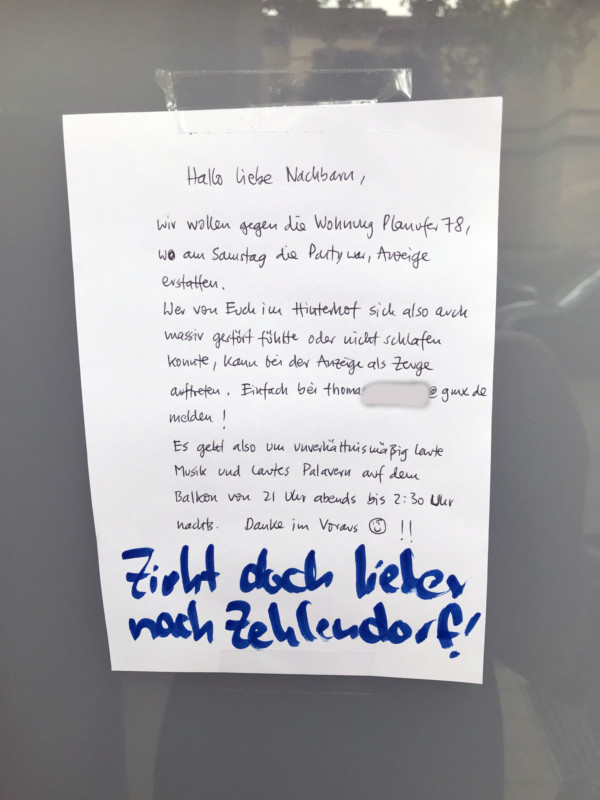 Hallo liebe Nachbarn,
wir wollen gegen die Wohnung Planufer 78,
wo am Samstag die Party war, Anzeige
erstatten.
Wer von Euch im Hinterhof sich also auch
massiv gestört fühlte oder nicht schlafen
konnte, kann bei der Anzeige als Zeuge
auftreten. Einfach bei thoma @gmx.de
melden!
Es geht also um unverhältnismäßig laute
Musik und lautes Palavern auf dem
Balkon von 21 Uhr abends bis 2:30 Uhr
nachts. Danke im Voraus ☺ !!
Zieht doch lieber
nach Zehlendorf!